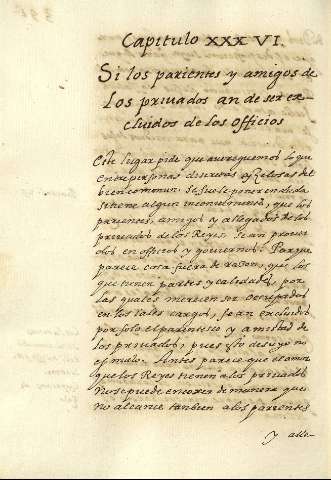 Capitulo XXXVI.
Si los parientes y amigos de
los privados an de ser ex-
cluidos de los officios
Este lugar pide que averiguemos lo que
entre personas discretas y zelosas del
bien comun se suele poner en duda
si tiene algun inconveniente, que los
parientes, amigos y allegados de los
privados de los Reyes, sean provei-
dos en officios y goviernos? Porque
parece cosa fuera de razon, que los
que tienen partes y calidades, por
las quales merecen ser occupados
en los tales cargos, sean excluidos
por solo el parentesco y amistad de
los privados, pues esto de suyo no
es malo. Antes parece que el amor
que los Reyes tienen a los privados
no se puede encoxer de manera que
no alcance tanbien a los parientes
y alle-